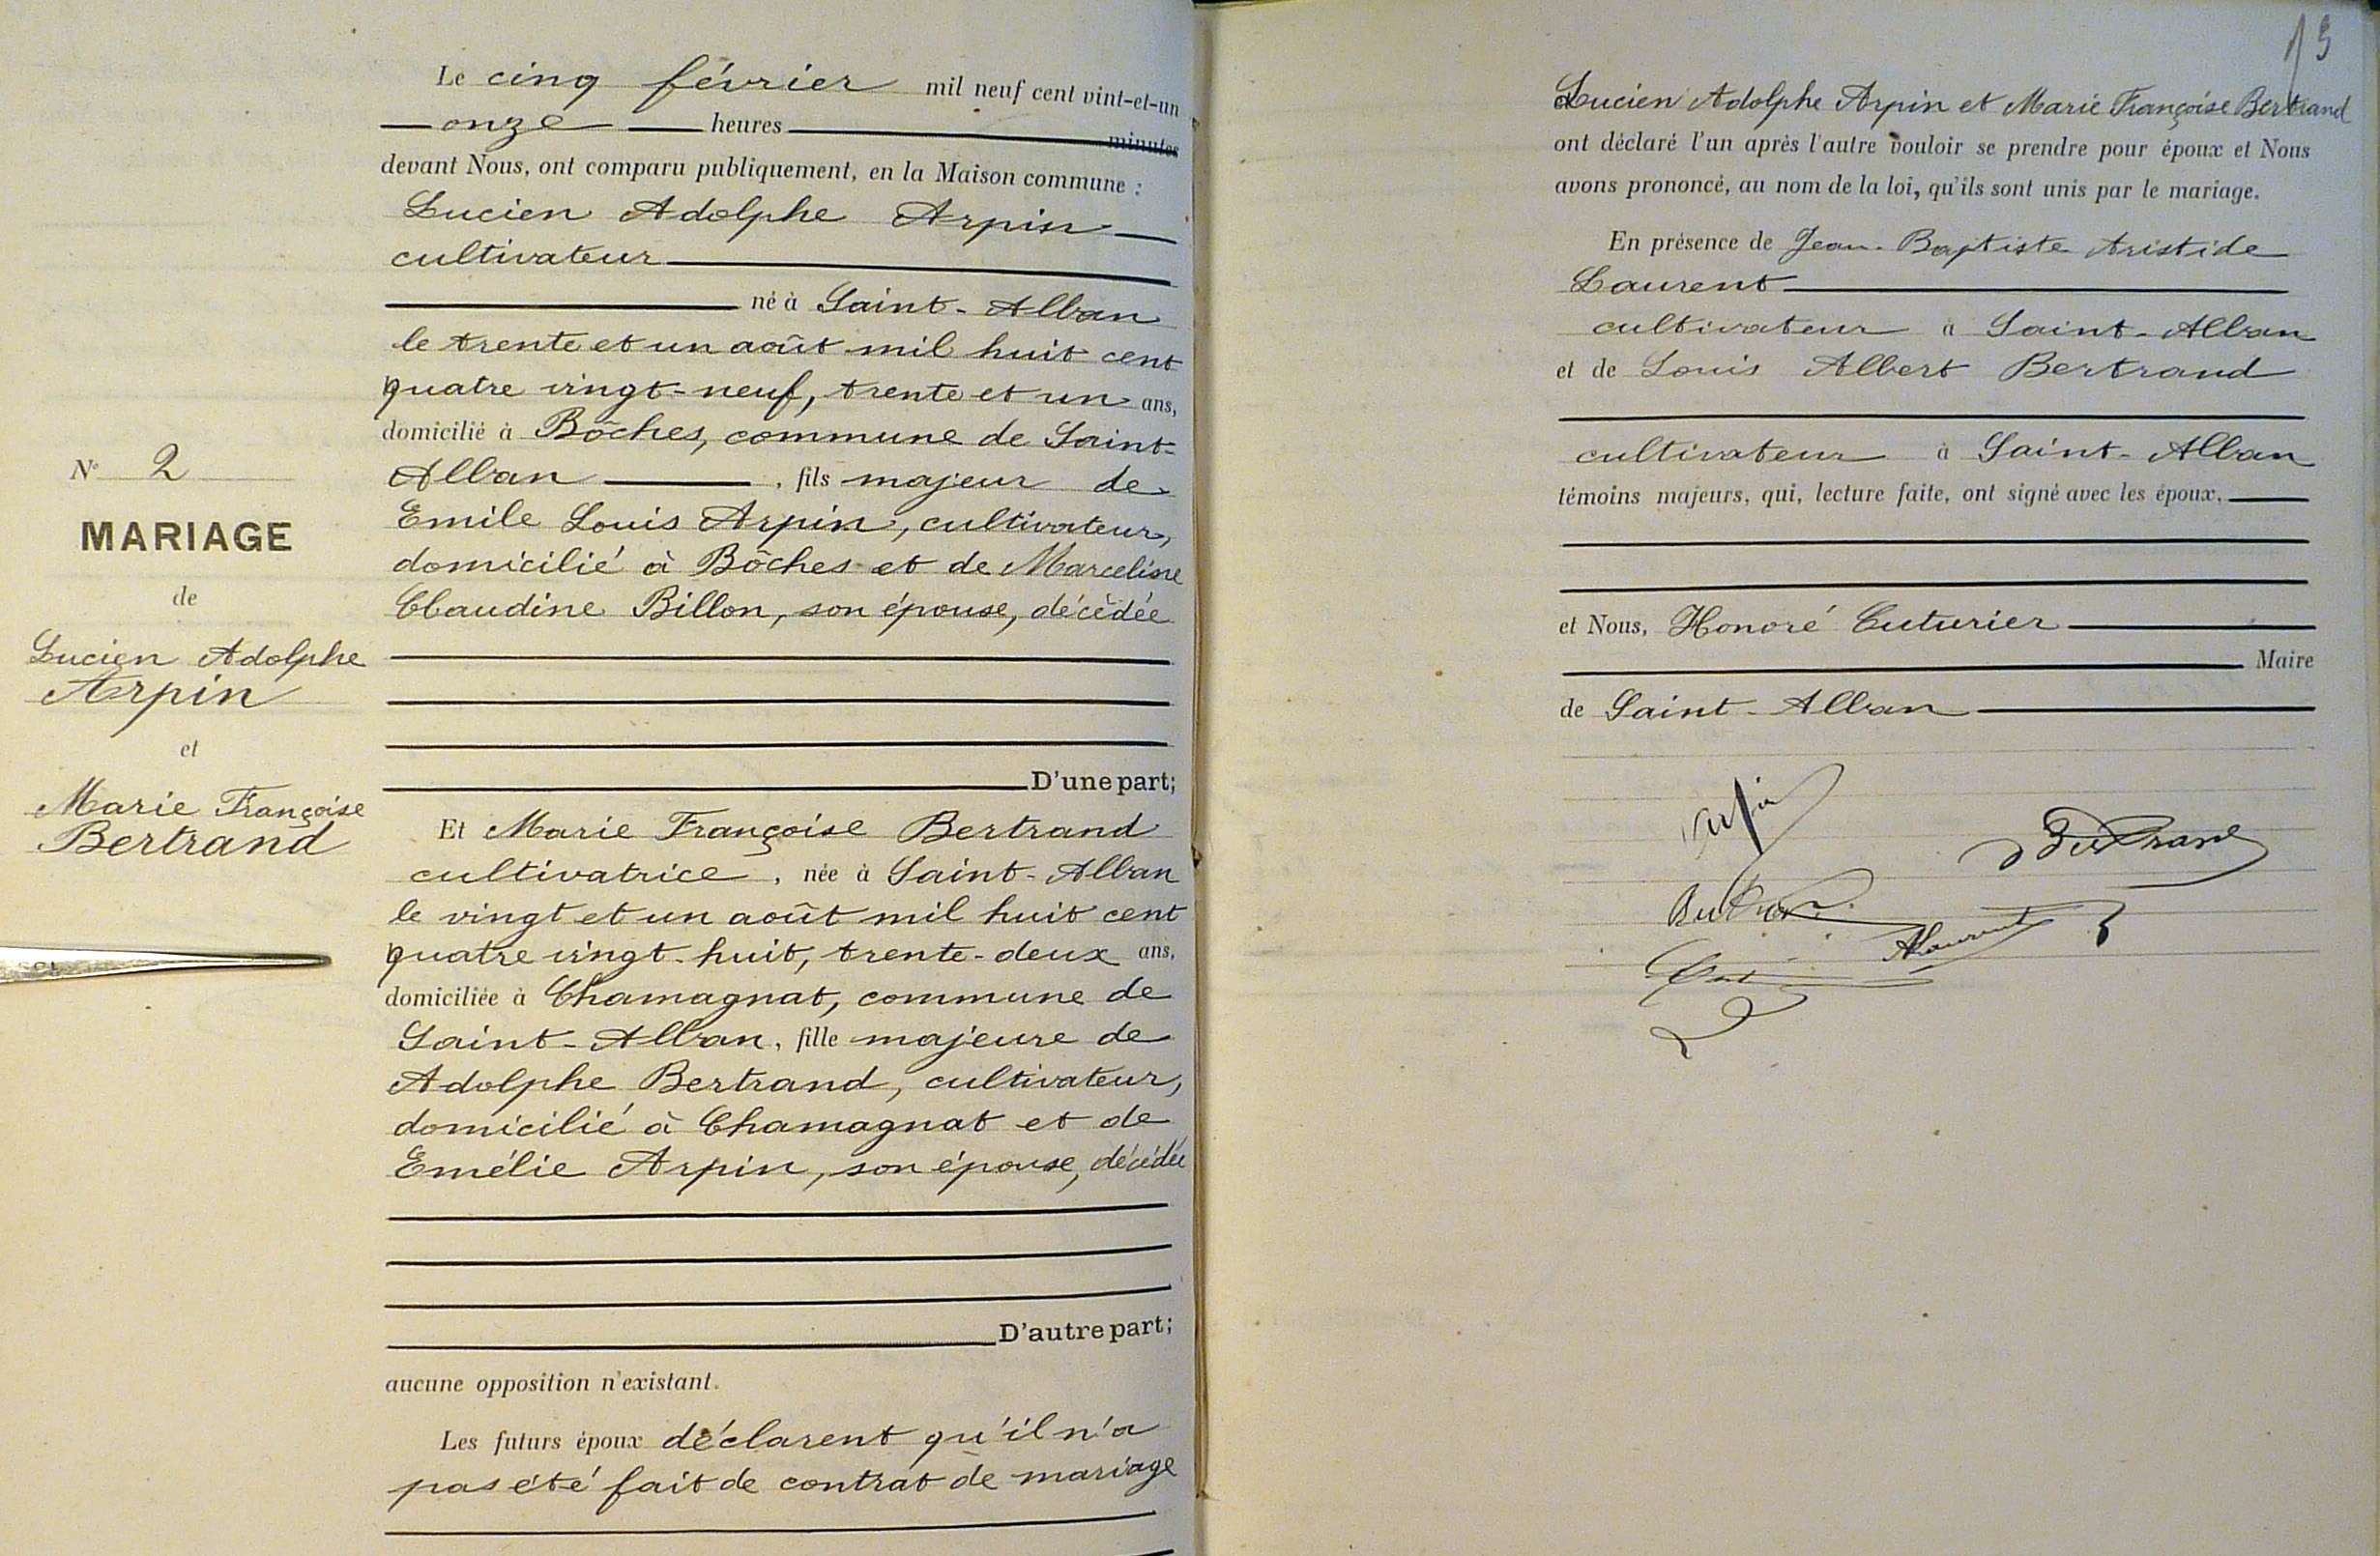 Le cinq février mil neuf cent vint-et-un
onze heures minutes
devant Nous, ont comparu publiquement, en la Maison commune :
Lucien Adolphe Arpin
cultivateur
né à Saint-Alban
le trente et un août mil huit cent
quatre vingt-neuf, trente et un ans,
domicilié à Bôches, commune de Saint-
Alban , fils majeur de
Emile Louis Arpin, cultivateur,
domicilié à Bôches et de Marceline
Claudine Billon, son épouse, décèdée
D'une part;
N° 2
MARIAGE
de
Lucien Adolphe
Arpin
et
Marie Françoise
Bertrand
Et Marie Françoise Bertrand
cultivatrice, née à Saint-Alban
le vingt et un août mil huit cent
quatre vingt-huit, trente-deux ans,
domiciliée à Chamagnat, commune de
Saint-Alban, fille majeure de
Adolphe Bertrand, cultivateur,
domicilié à Chamagnat et de
Emélie Arpin, son épouse, décédée
D'autre part;
aucune opposition n'existant.
Les futurs époux déclarent qu'il n'a
pas été fait de contrat de mariage
13
Lucien Adolphe Arpin et Marie Françoise Bertrand
ont déclaré l'un après l'autre vouloir se prendre pour époux et Nous
avons prononcé, au nom de la loi, qu'ils sont unis par le mariage.
En présence de Jean-Baptiste Aristide
Laurent
cultivateur à Saint-Alban
et de Louis Albert Bertrand
cultivateur à Saint-Alban
témoins majeurs, qui, lecture faite, ont signé avec les époux,
et Nous, Honoré Cuturier
Maire
de Saint-Alban
Arpin
Bertrand
ALaurent